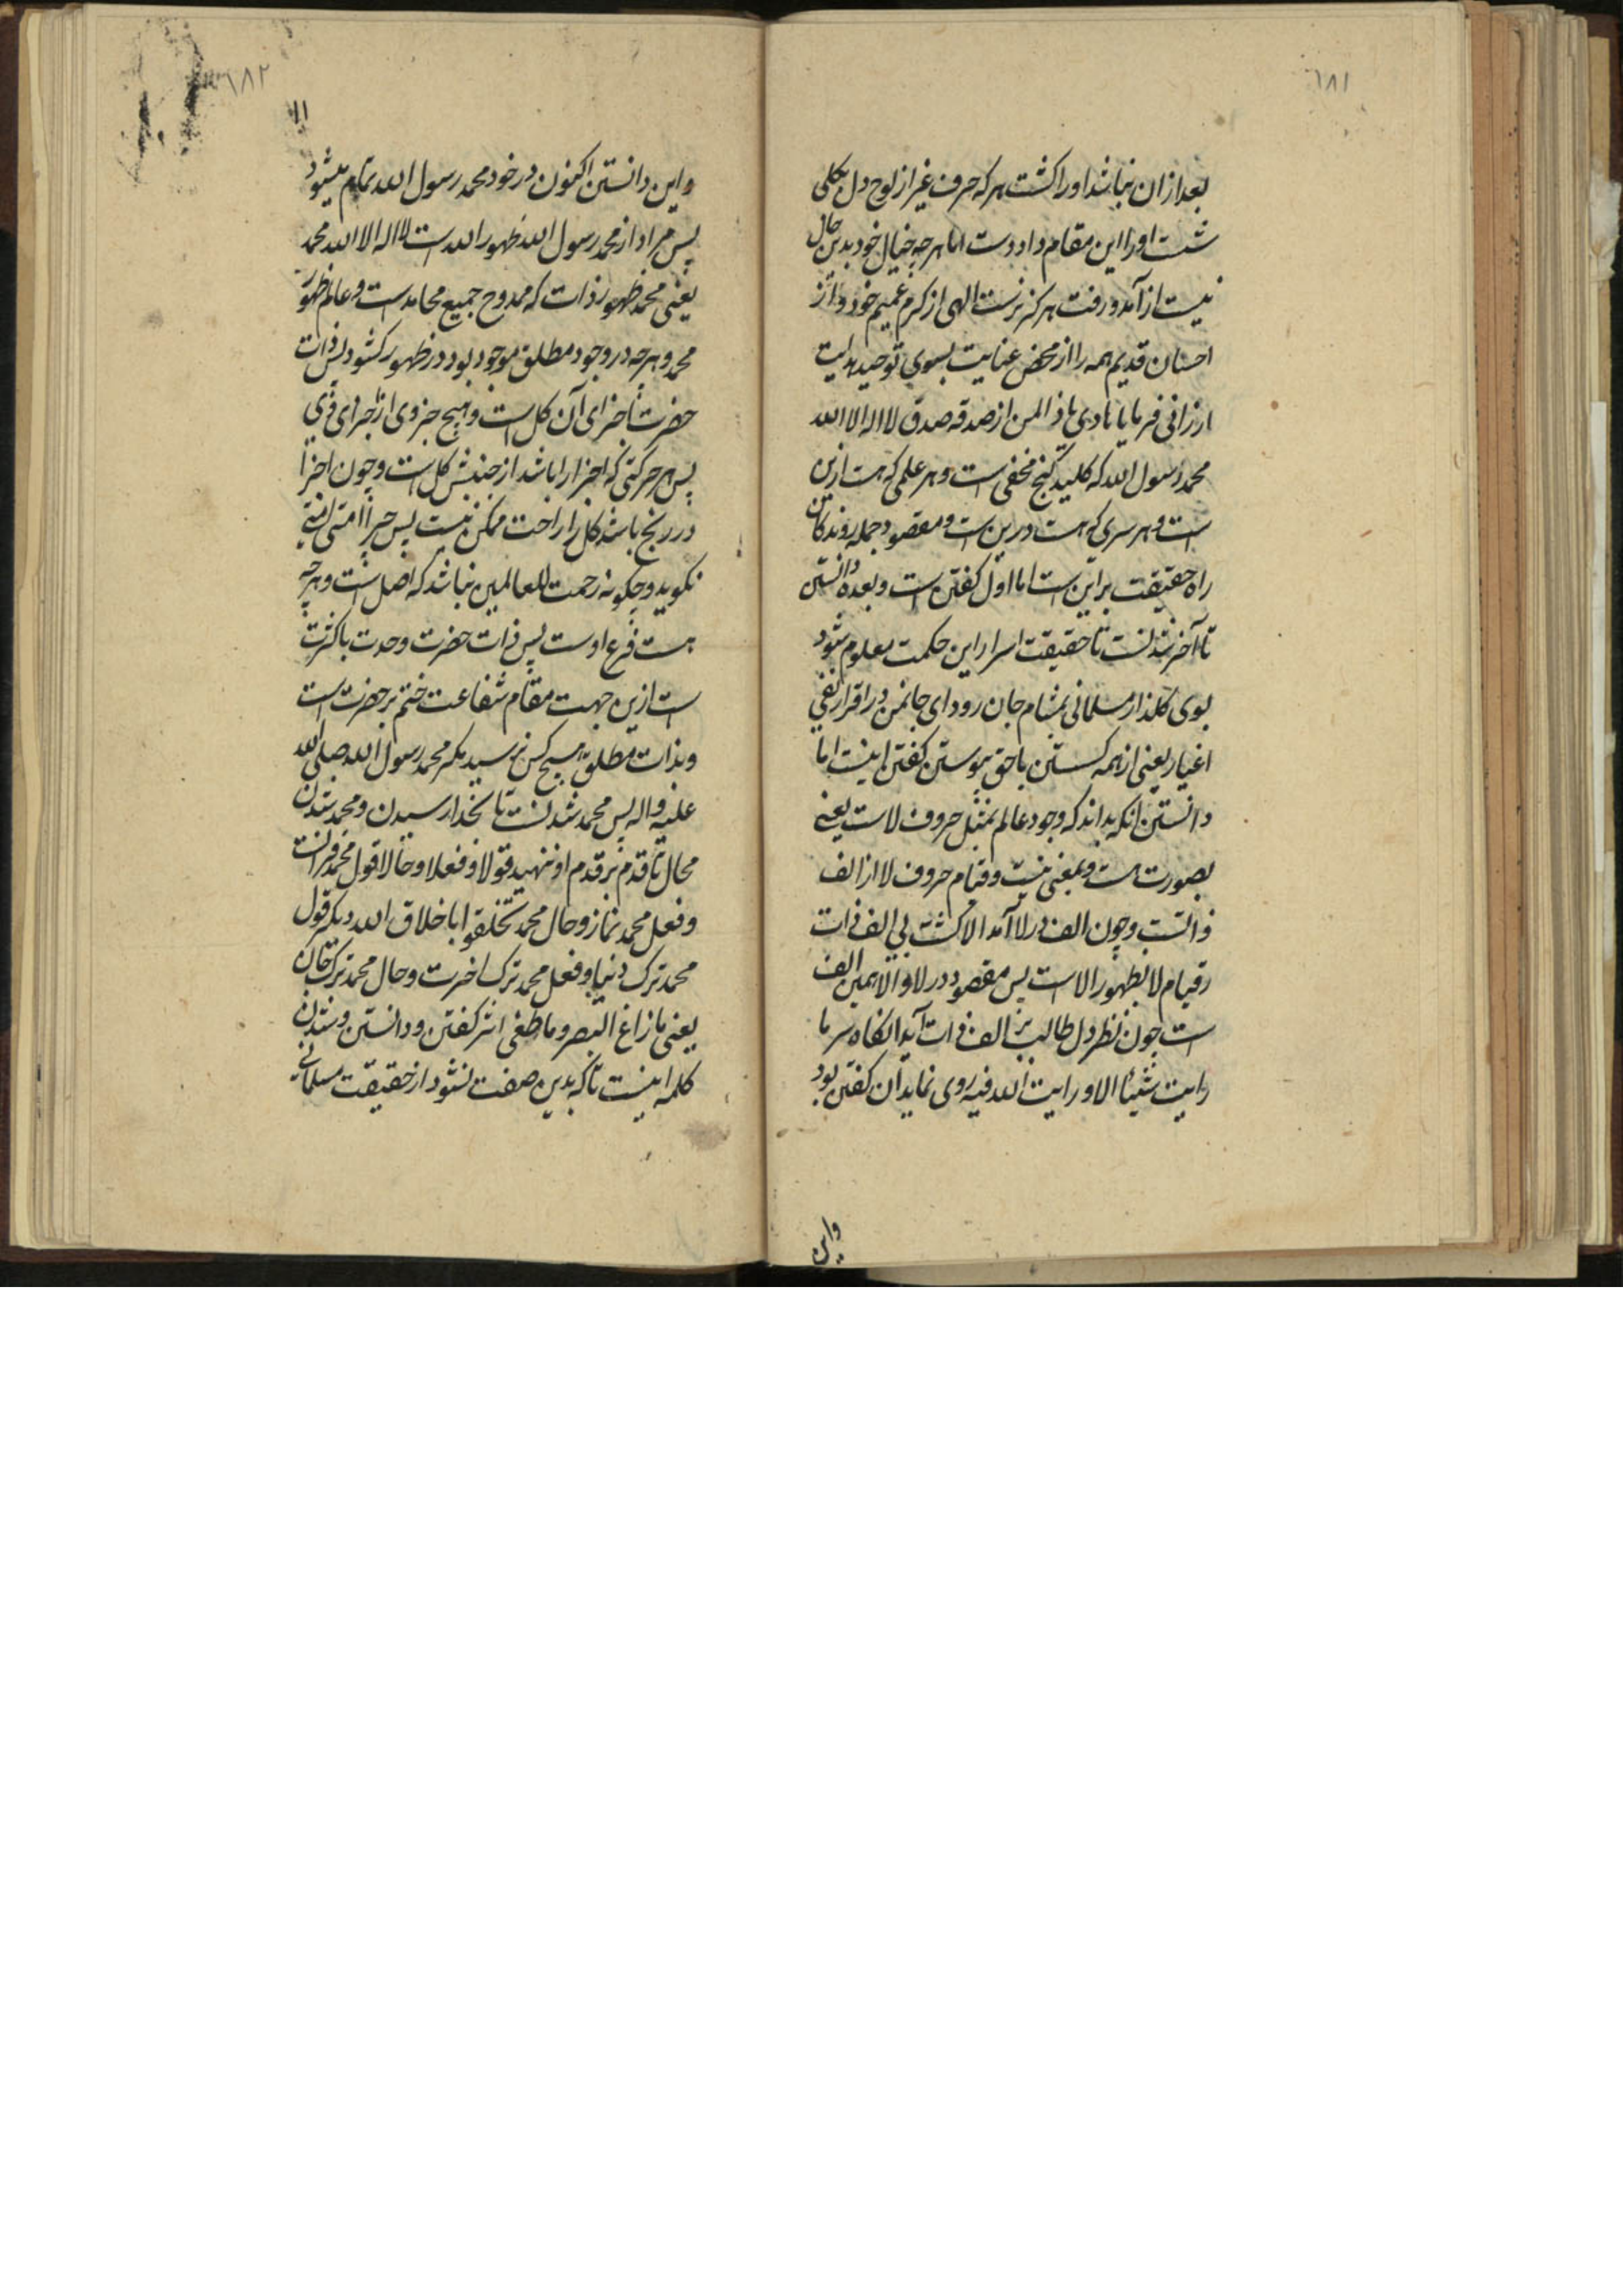 ٦٨١
بعد ازان نباشد اورا کشت هرکه حرف غیر از لوح دل بکلی
شست اورا این مقام داد دست اما هرچه خیال خود بدین حال
نیست از آمد و رفت هرکز نرست الهی از کرم عمیم خود و از
احسان قدیم همه را از محض عنایت بسوی توحید هدایت
ارزانی فرمایا یا هادی یا ذا المن از صدقه صدق لا اله الا الله
محمد رسول الله که کلید کنج مخفی است و هر علمی که هست ازین
است و هر سری که هست درین است و مقصود جمله روندکان
راه حقیقت براین است اما اول کفتن است و بعده دانستن
تا آخر شدنست تا حقیقت اسرار این حکمت معلوم شود
بوی کلذار مسلمانی بمشام جان رود ای جانمن در اقرار نفی
اغیار یعنی از همه کسستن باحق پیوستن کفتن اینست اما
دانستن انکه بداند که وجود عالم بمثل حروف لاست یعنی
بصورت هست و بمعنی نیست و قیام حروف لا از الف
ذاتست و چون الف در لا آمد الا کشت بی الف ذات
و قیام لا بظهور الا است پس مقصود در لا و الا همین الف
است چون نظر دل طالب بر الف ذات آید انکاه سر ما
رایت شیئا الا و رایت الله فیه روی نماید آن کفتن بود
واین
٦٨٢
واین دانستن اکنون در خود محمد رسول الله تمام میشود
پس مراد از محمد رسول الله ظهور الله است لا اله الا الله محمد
یعنی محمد ظهور ذات که ممدوح جمیع محامد است و عالم ظهور
محمد و هرچه در وجود مطلق موجود بود در ظهور کشود پس ذات
حضرت تا جزای آن کل است و هیچ جزوی از اجزای وی
پس هر حرکتی که اجزا را باشد از جنبش کل است و چون اجزا
در رنج باشد کل را راحت ممکن نیست پس چرا امتی امتی
نکوید و چکونه رحمت للعالمین نباشد که اصل است و هرچه
هست فرع اوست پس ذات حضرت وحدت با کثرت
است ازین جهت مقام شفاعت ختم بر حضرت است
و بذات مطلق هیچ کس نرسید مکر محمد رسول الله صلی الله
علیه و اله پس محمد شدنست تا بخدا رسیدن و محمد شدن
محال تا قدم بر قدم او ننهید قولا و فعلا و حالا قول محمد قرانست
و فعل محمد نماز و حال محمد تخلقوا باخلاق الله دیکر قول
محمد ترک دنیا و فعل محمد ترک اخرت و حال محمد ترک جان
یعنی ما زاغ البصر و ما طغی اثر کفتن و دانستن و شدن
کلمه اینست تا که بدین صفت نشود از حقیقت مسلمانی